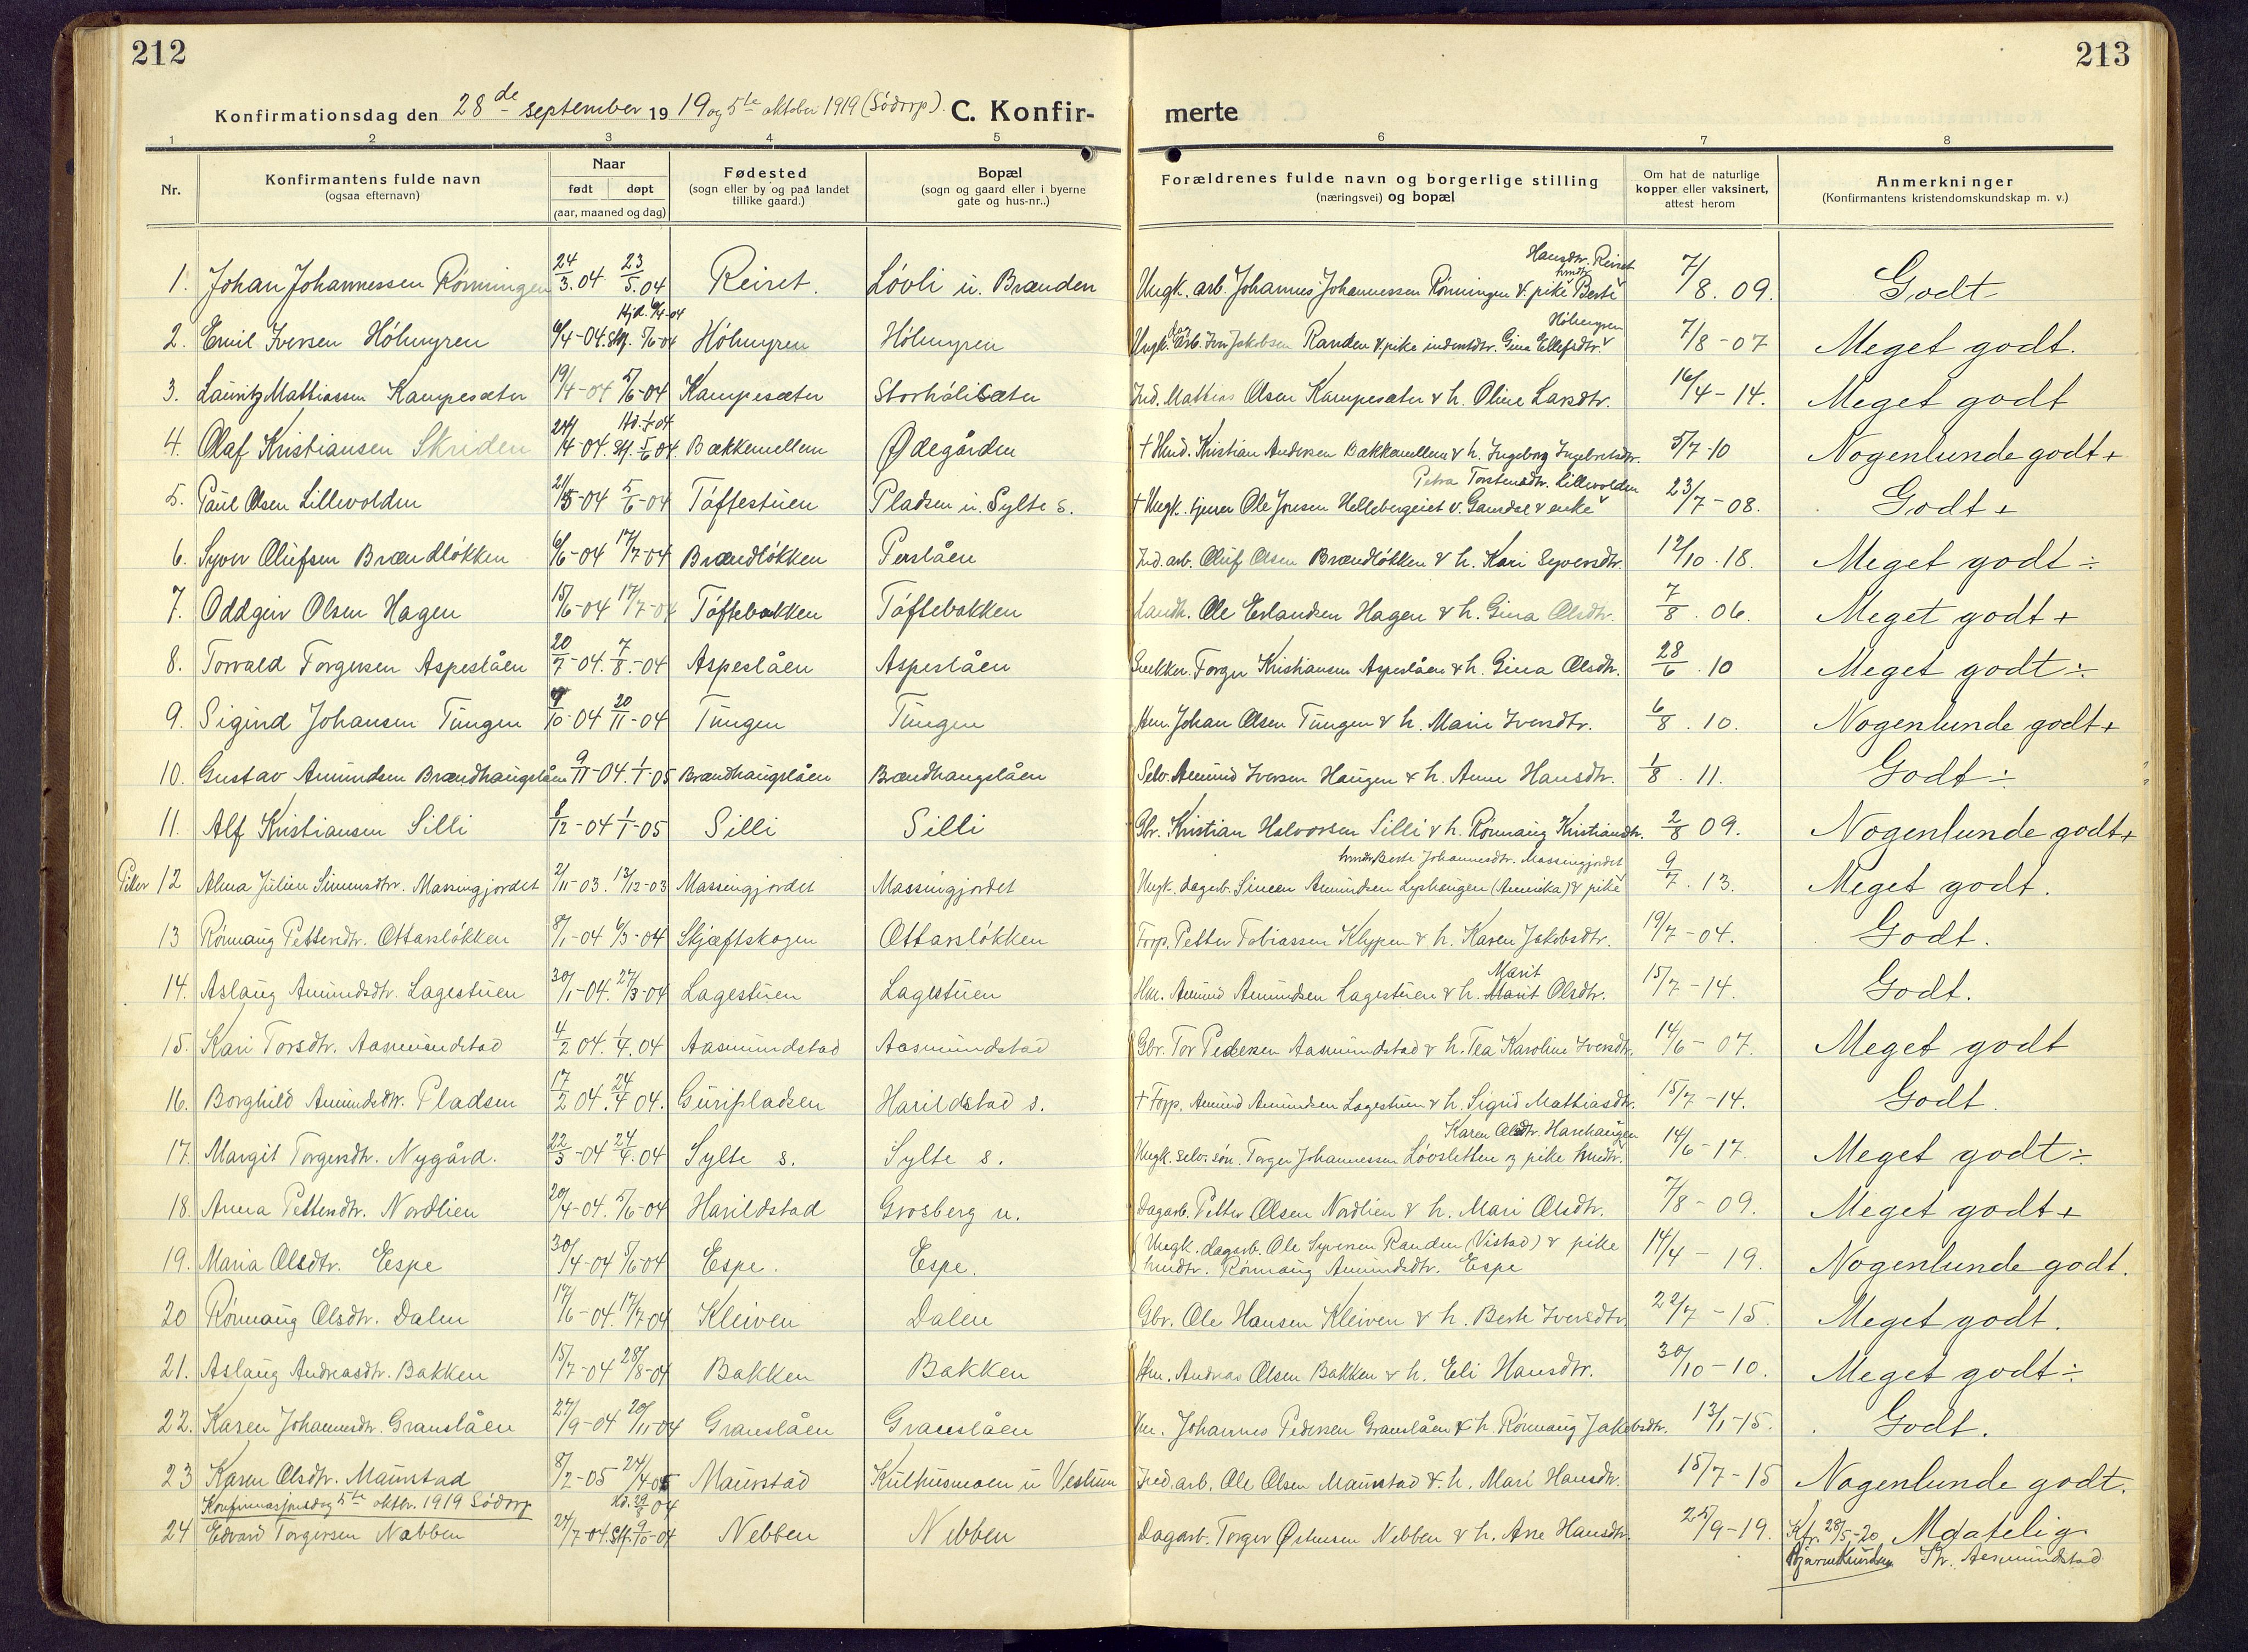 212
213
Konfirmationsdag den 28de september 1919 og 5te oktober 1919 (Södorp). C. Konfir-
merte
1 2 3 4 5 6 7 8
Nr.
Konfirmantens fulde navn
(ogsaa efternavn)
Naar
født døpt
(aar, maaned og dag)
Fødested
(sogn eller by og paa landet
tillike gaard.)
Bopæl
(sogn og gaard eller i byerne
gate og hus-nr..)
Forældrenes fulde navn og borgerlige stilling
(næringsvei) og bopæl
Om hat de naturlige
kopper eller vaksinert,
attest herom
Anmerkninger
(Konfirmantens kristendomskundskap m. v.)
Hansdtr. Reiset
1. Johan Johannessen Rönningen 24/3.04 23/5.04 Reiset. Lövli u. Brænden Ungk. arb. Johannes Johannessen Rönningen & pike Berte 7/8.09. Godt
Hjd. 6/4-04
Hölmyren
2. Emil Iversen Hölmyren 6/4-04. Stf. 5/6-04 Hölmyren Hölmyren Ungk. arb. Iver Jakobsen Randen & pike inderstdtr. Gina Ellefsdtr. 7/8-07 Meget godt.
3. Lauritz Mattiassen Kampesæter 19/4-04 5/6-04 Kampesæter Storhölisæter Ind. Mattias Olsen Kampesæter & h. Oline Larsdtr. 16/4-14. Meget godt
4. Olaf Kristiansen Skriden 24/4-04. Stf. 5/6 04. Bækkemellem Ødegården + Hmd. Kristian Andersen Bækkemellem & h. Ingeborg Ingebretsdtr. 5/7-10 Nogenlunde godt +
Petra Torstensdtr. Lillevolden
5. Paul Olsen Lillevolden 21/5-04 5/6-04 Töftestuen Pladsen u. Sylte s. + Ungk. tjener Ole Jonsen Hellebergeiet v. Gausdal & enke 23/7-08. Godt +
6. Syver Olufsen Brændlökken 6/6-04 17/7-04 Brændlökken Perslåen Ind. arb. Oluf Olsen Brændlökken & h. Kari Syversdtr. 12/10.18. Meget godt ÷
7. Oddgeir Olsen Hagen 15/6-04 17/7-04 Töftebakken Töftebakken Landh. Ole Erlandsen Hagen & h. Gina Olsdtr. 7/8.06. Meget godt +
8. Torvald Torgersen Aspeslåen 20/7-04. 7/8.-04 Aspeslåen Aspeslåen Snekker Torger Kristiansen Aspeslåen & h. Gina Olsdtr. 28/6.10 Meget godt ÷
9. Sigurd Johansen Tungen 9/10-04 20/11-04 Tungen Tungen Hm. Johan Olsen Tungen & h. Marie Iversdtr. 6/8.10. Nogenlunde godt +
10. Gustav Amundsen Brændhaugslåen 9/11-04. 1/1-05 Brændhaugslåen Brændhaugslåen Selv. Amund Iversen Haugen & h. Anne Hansdtr. 1/8.11. Godt ÷
11. Alf Kristiansen Silli 8/12-04 1/1-05 Silli Silli Gbr. Kristian Halvorsen Silli & h. Rönnaug Kristiansdtr. 2/8 09. Nogenlunde godt +
hmdtr. Berte Johannesdtr. Massingjordet
Piker 12 Alma Juline Simensdtr. Massingjordet 2/11-03. 13/12-03 Massingjordet Massingjordet Ungk. dagarb. Simen Amundsen Lyshaugen (Amerika) & pike 9/7.13. Meget godt.
13 Rönnaug Pettersdtr. Ottarslökken 8/1-04 6/3-04 Skjæftskogen Ottarslökken Forp. Petter Tobiassen Klypen & h. Karen Jakobsdtr. 19/7-04. Godt.
Marit
14. Aslaug Amundsdtr. Lagestuen 30/1-04. 27/3-04 Lagestuen Lagestuen Hm. Amund Amundsen Lagestuen & h. Marit Olsdtr. 15/7-14. Godt.
15. Kari Torsdtr. Aasmundstad 4/2 04. 1/4.04 Aasmundstad Aasmundstad Gbr. Tor Pedersen Aasmundstad & h. Tea Karoline Iversdtr. 14/6-07. Meget godt
16. Borghild Amundsdtr. Pladsen 17/2 04. 24/4 04. Guripladsen Harildstad s. + Forp. Amund Amundsen Lagestuen & h. Sigrid Mattiasdtr. 15/7-14. Godt.
Karen Olsdtr. Harehaugen
17. Margit Torgersdtr. Nygård. 22/3-04 24/4.04 Sylte s. Sylte s. Ungk. selv. sön. Torger Johannessen Lövsletten og pike hmdtr. 14/6-17. Meget godt ÷
18. Anna Pettersdtr. Nordlien 20/4-04. 5/6-04 Harildstad Grosberg n. Dagarb. Petter Olsen Nordlien & h. Mari Olsdtr. 7/8-09. Meget godt +
19. Maria Olsdtr. Espe 30/4-04 5/6-04 Espe. Espe. Ungk. dagarb. Ole Syversen Randen (Vistad) & pike
hmdtr. Rönnaug Amundsdtr. Espe 14/4-19. Nogenlunde godt.
20 Rönnaug Olsdtr. Dalen 17/6-04. 17/7 04 Kleiven Dalen Gbr. Ole Hansen Kleiven & h. Berte Iversdtr. 22/7-15. Meget godt.
21. Aslaug Andreasdtr. Bakken 15/7-04 28/8-04 Bakken Bakken Hm. Andreas Olsen Bakken & h. Eli Hansdtr. 30/10-10. Meget godt ÷
22. Karen Johannesdtr. Granslåen 27/9-04 20/11-04 Granslåen Granslåen Hm. Johannes Pedersen Granslåen & h. Rönnaug Jakobsdtr. 13/1-15. Godt.
23 Karen Olsdtr. Maurstad 8/2-05 24/4-05 Maurstad Kulhusmoen u Vestum Ind. arb. Ole Olsen Maurstad & h. Mari Hansdtr. 15/7-15 Nogenlunde godt.
Konfirmasjonsdag 5te oktbr. 1919 Södorp
24 Edvard Torgersen Nebben 24/7-04. Stf. 9/10-04 Nebben Nebben Dagarb. Torger Østensen Nebben & h. Ane Hansdtr. 25/9-19. Kfr. 28/5-20 Maatelig
Bjarne Knudsen Kr. Aasmundstad